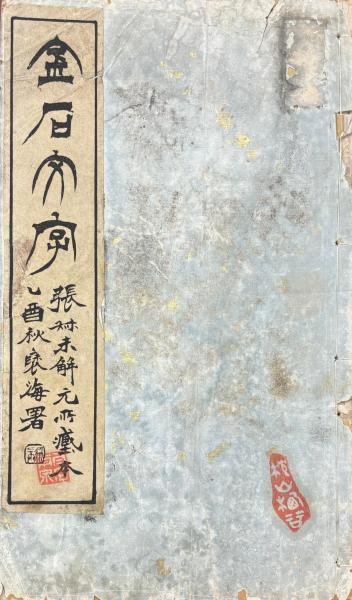 金石文字
張叔未解元所臧本
乙酉秋褎海署